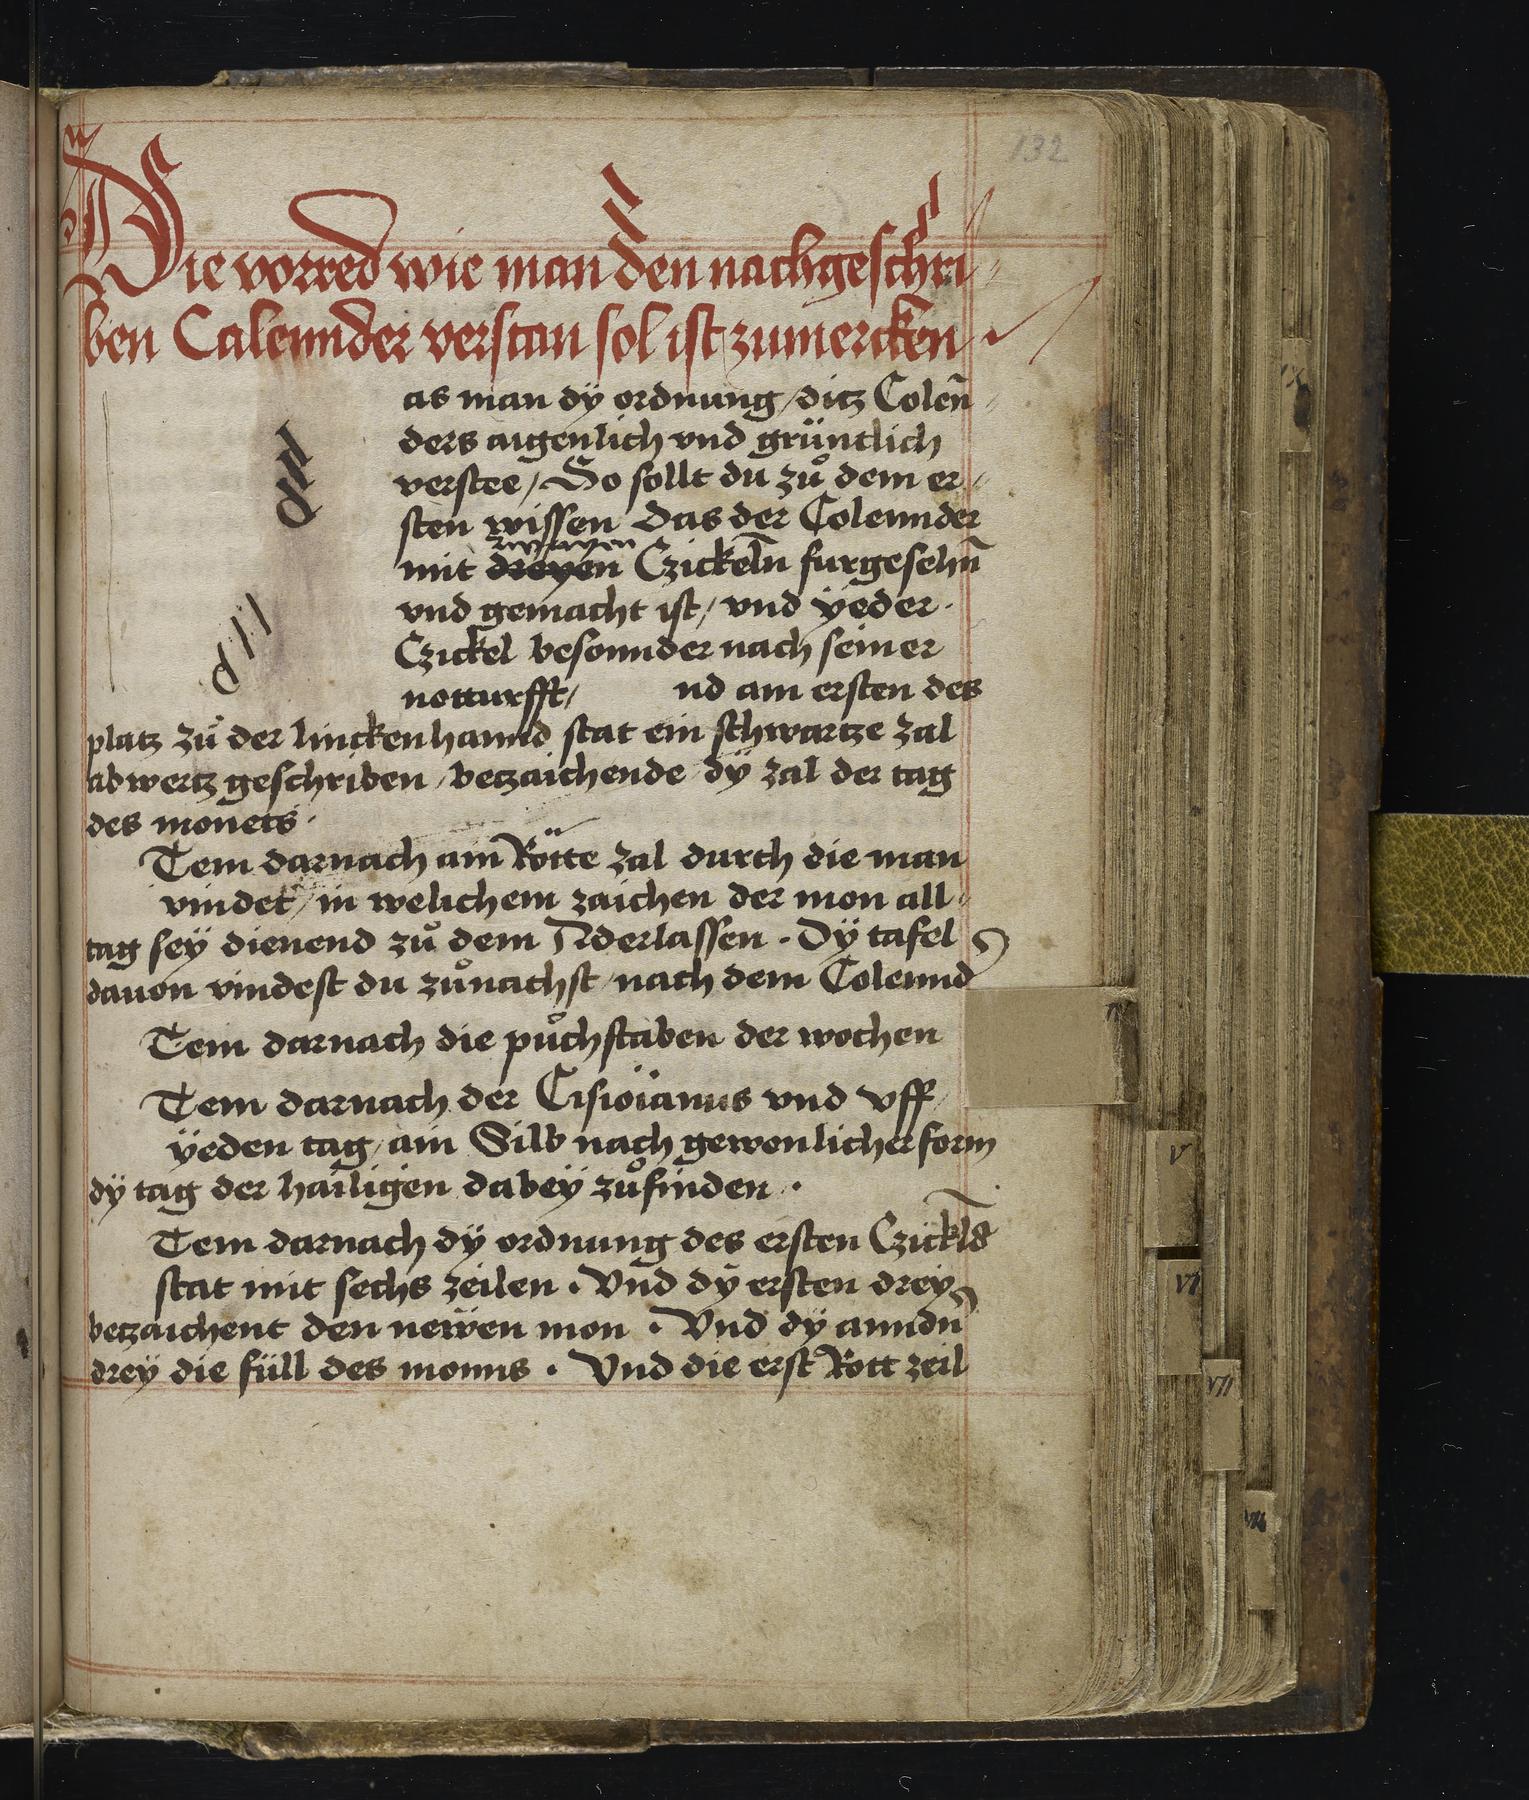 132
Die vorred wie man den nachgeschri
ben Calennder verstan sol ist zumercken ·
d
as man dÿ ordnung / ditz Colen̄
ders aigenlich vnd grüntlich
verstee / So sollt du zuͦ dem er
sten wissen das der Colennder
zwayen
mit dreyen Czickeln̄ furgesehn̄
vnd gemacht ist / vnd ÿeder
Czickel besonnder nach seiner
d
notturfft / nd am ersten des
platz zuͦ der lincken hannd stat ein schwartze zal
abwertz geschriben / betzaichende dÿ zal der tag
des monets ·
Tem darnach ain Rötte zal durch die man
vindet / in welichem zaichen der mon all
tag seÿ dienend zuͦ dem Aderlassen · Dÿ tafel
dauon vindest du zuͦnachst / nach dem Colennd
Tem darnach die puͦchstaben der wochen
Tem darnach der Cisioianus vnd vff
ÿeden tag / ain Silb nach gewonlicher form
dÿ tag der hailigen dabeÿ zuͦfinden ·
Tem darnach dÿ ordnung des ersten Czickl̄s
stat mit sechs zeilen · Vnd dÿ ersten drey
betzaichent den neẅen mon · Vnd dÿ anndn̄
dreÿ die füll des monns · Vnd die erst Rott zeil
IX
V
VI
VII
VIII